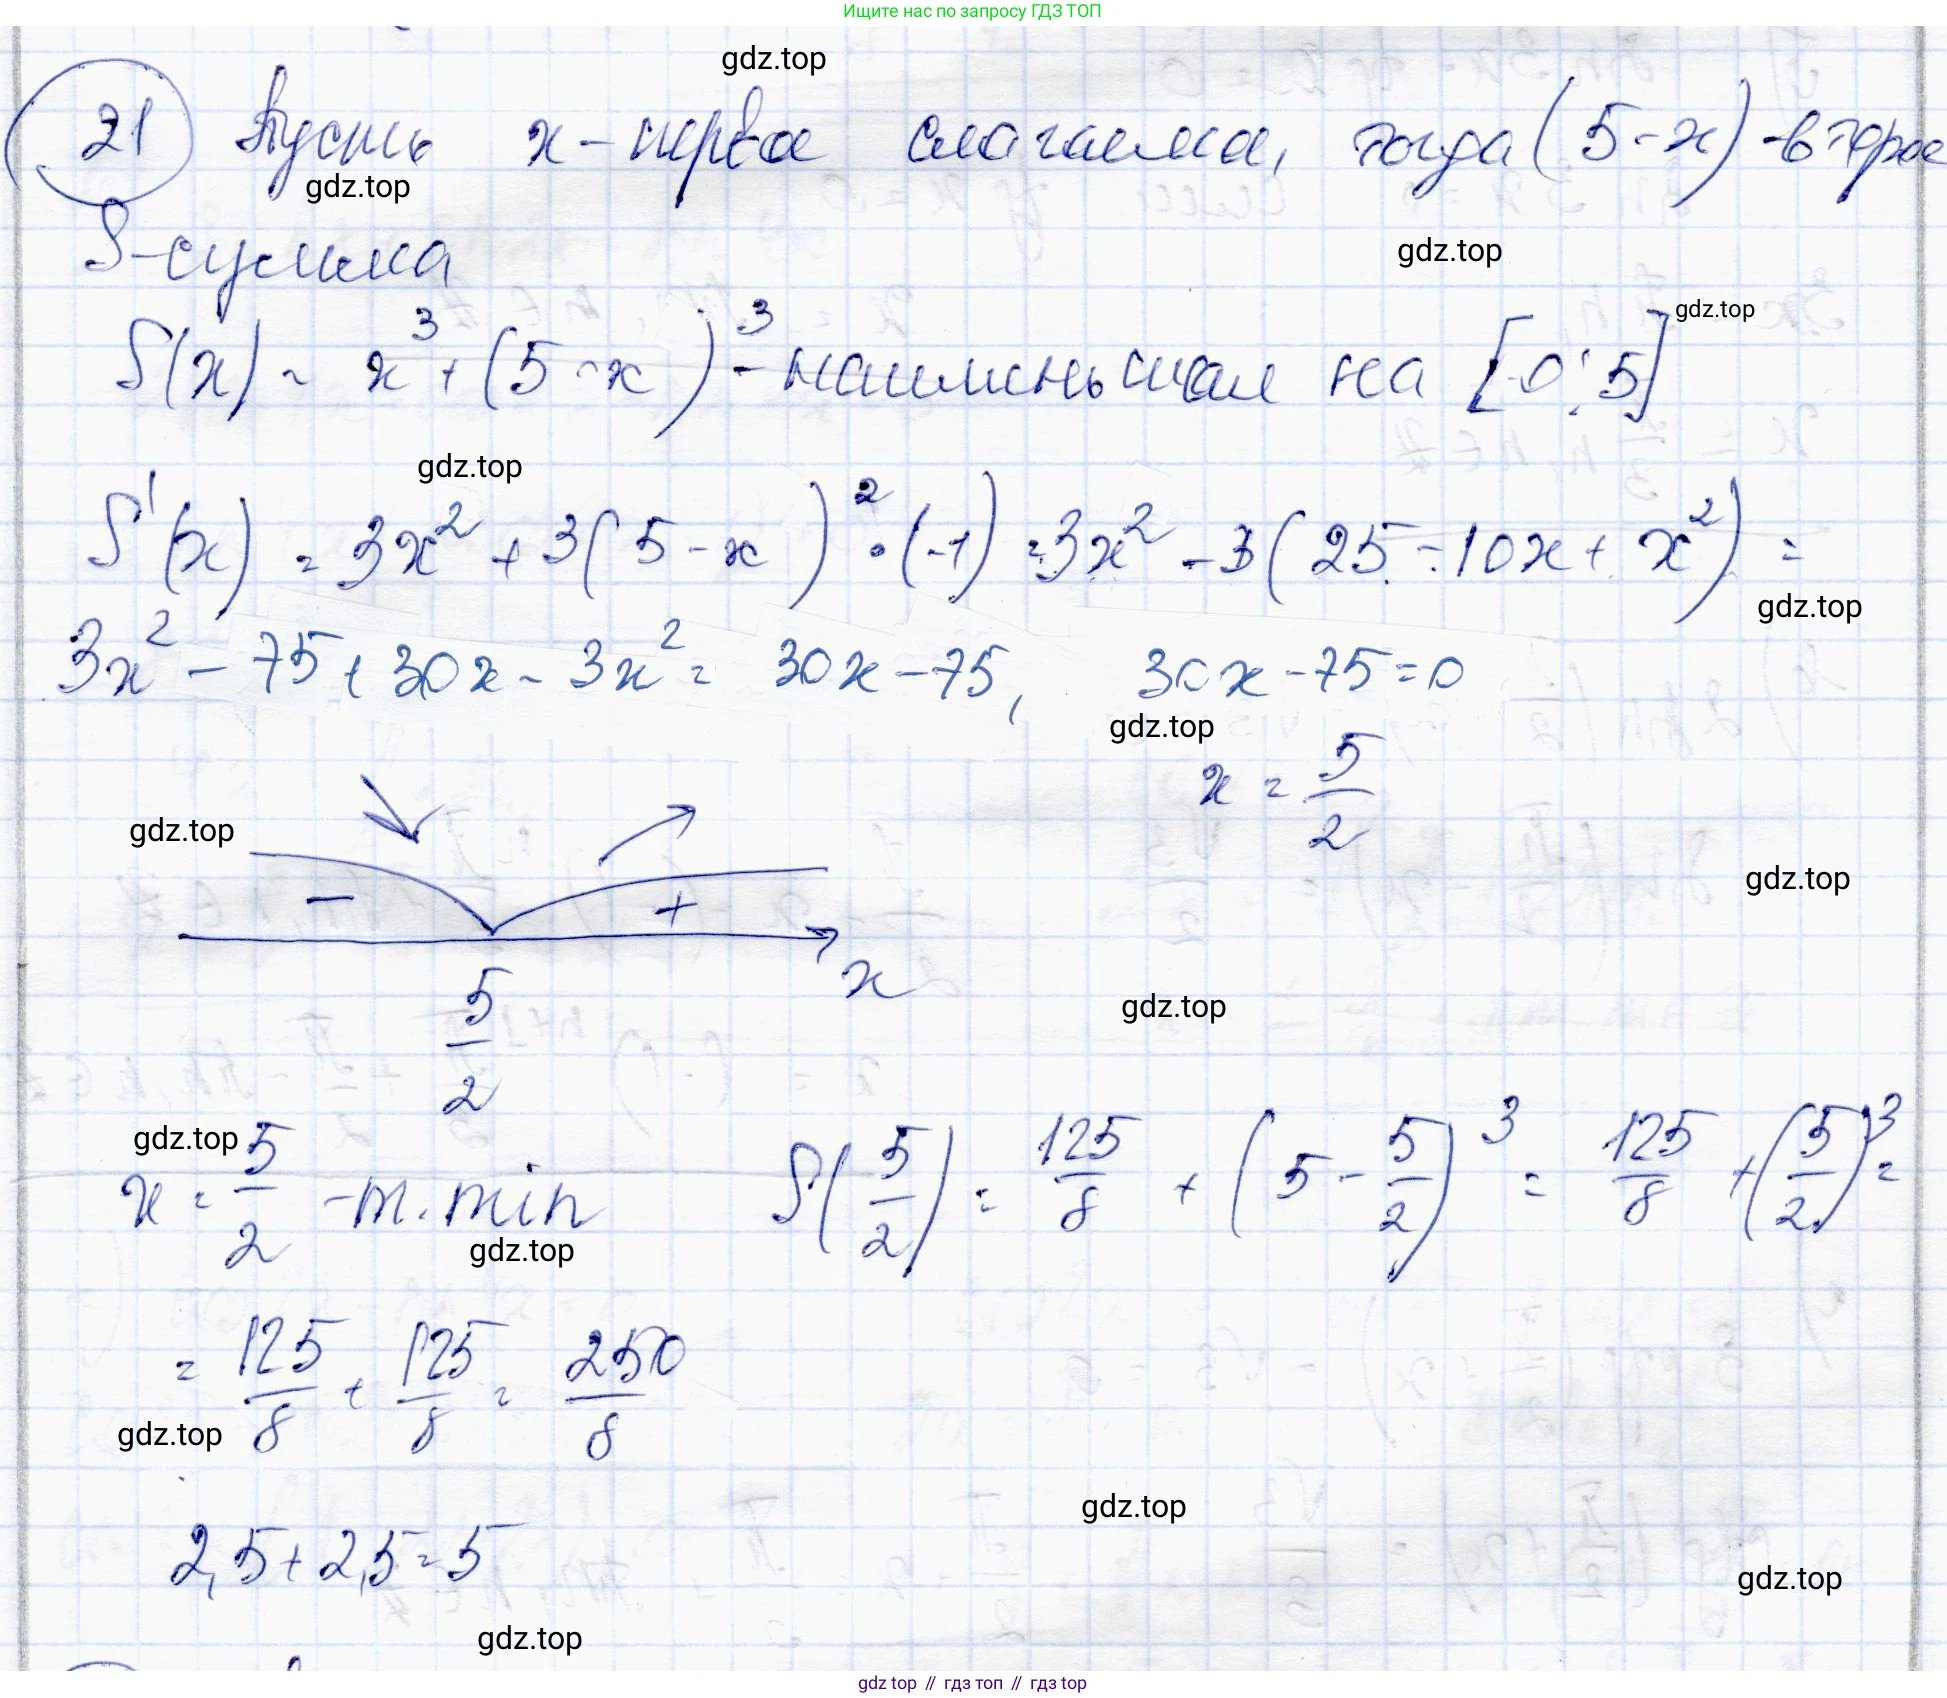 Ищите нас по запросу ГДЗ ТОП
gdz.top
21 Пусть x - перва слагаема, тогда (5 - x) - второе
gdz.top
S - сумма
gdz.top
gdz.top
S(x) = x³ + (5 - x)³ - наименьшая на [0; 5]
gdz.top
S'(x) = 3x² + 3(5 - x)² · (-1) = 3x² - 3(25 - 10x + x²) =
gdz.top
3x² - 75 + 30x - 3x² = 30x - 75, 30x - 75 = 0
gdz.top
x = 5/2
gdz.top
gdz.top
- +
x
5/2
gdz.top
gdz.top
x = 5/2 - т. min S(5/2) = 125/8 + (5 - 5/2)³ = 125/8 + (5/2)³ =
gdz.top
= 125/8 + 125/8 = 250/8
gdz.top
gdz.top
2,5 + 2,5 = 5
gdz.top
gdz.top
gdz top // гдз топ // gdz top